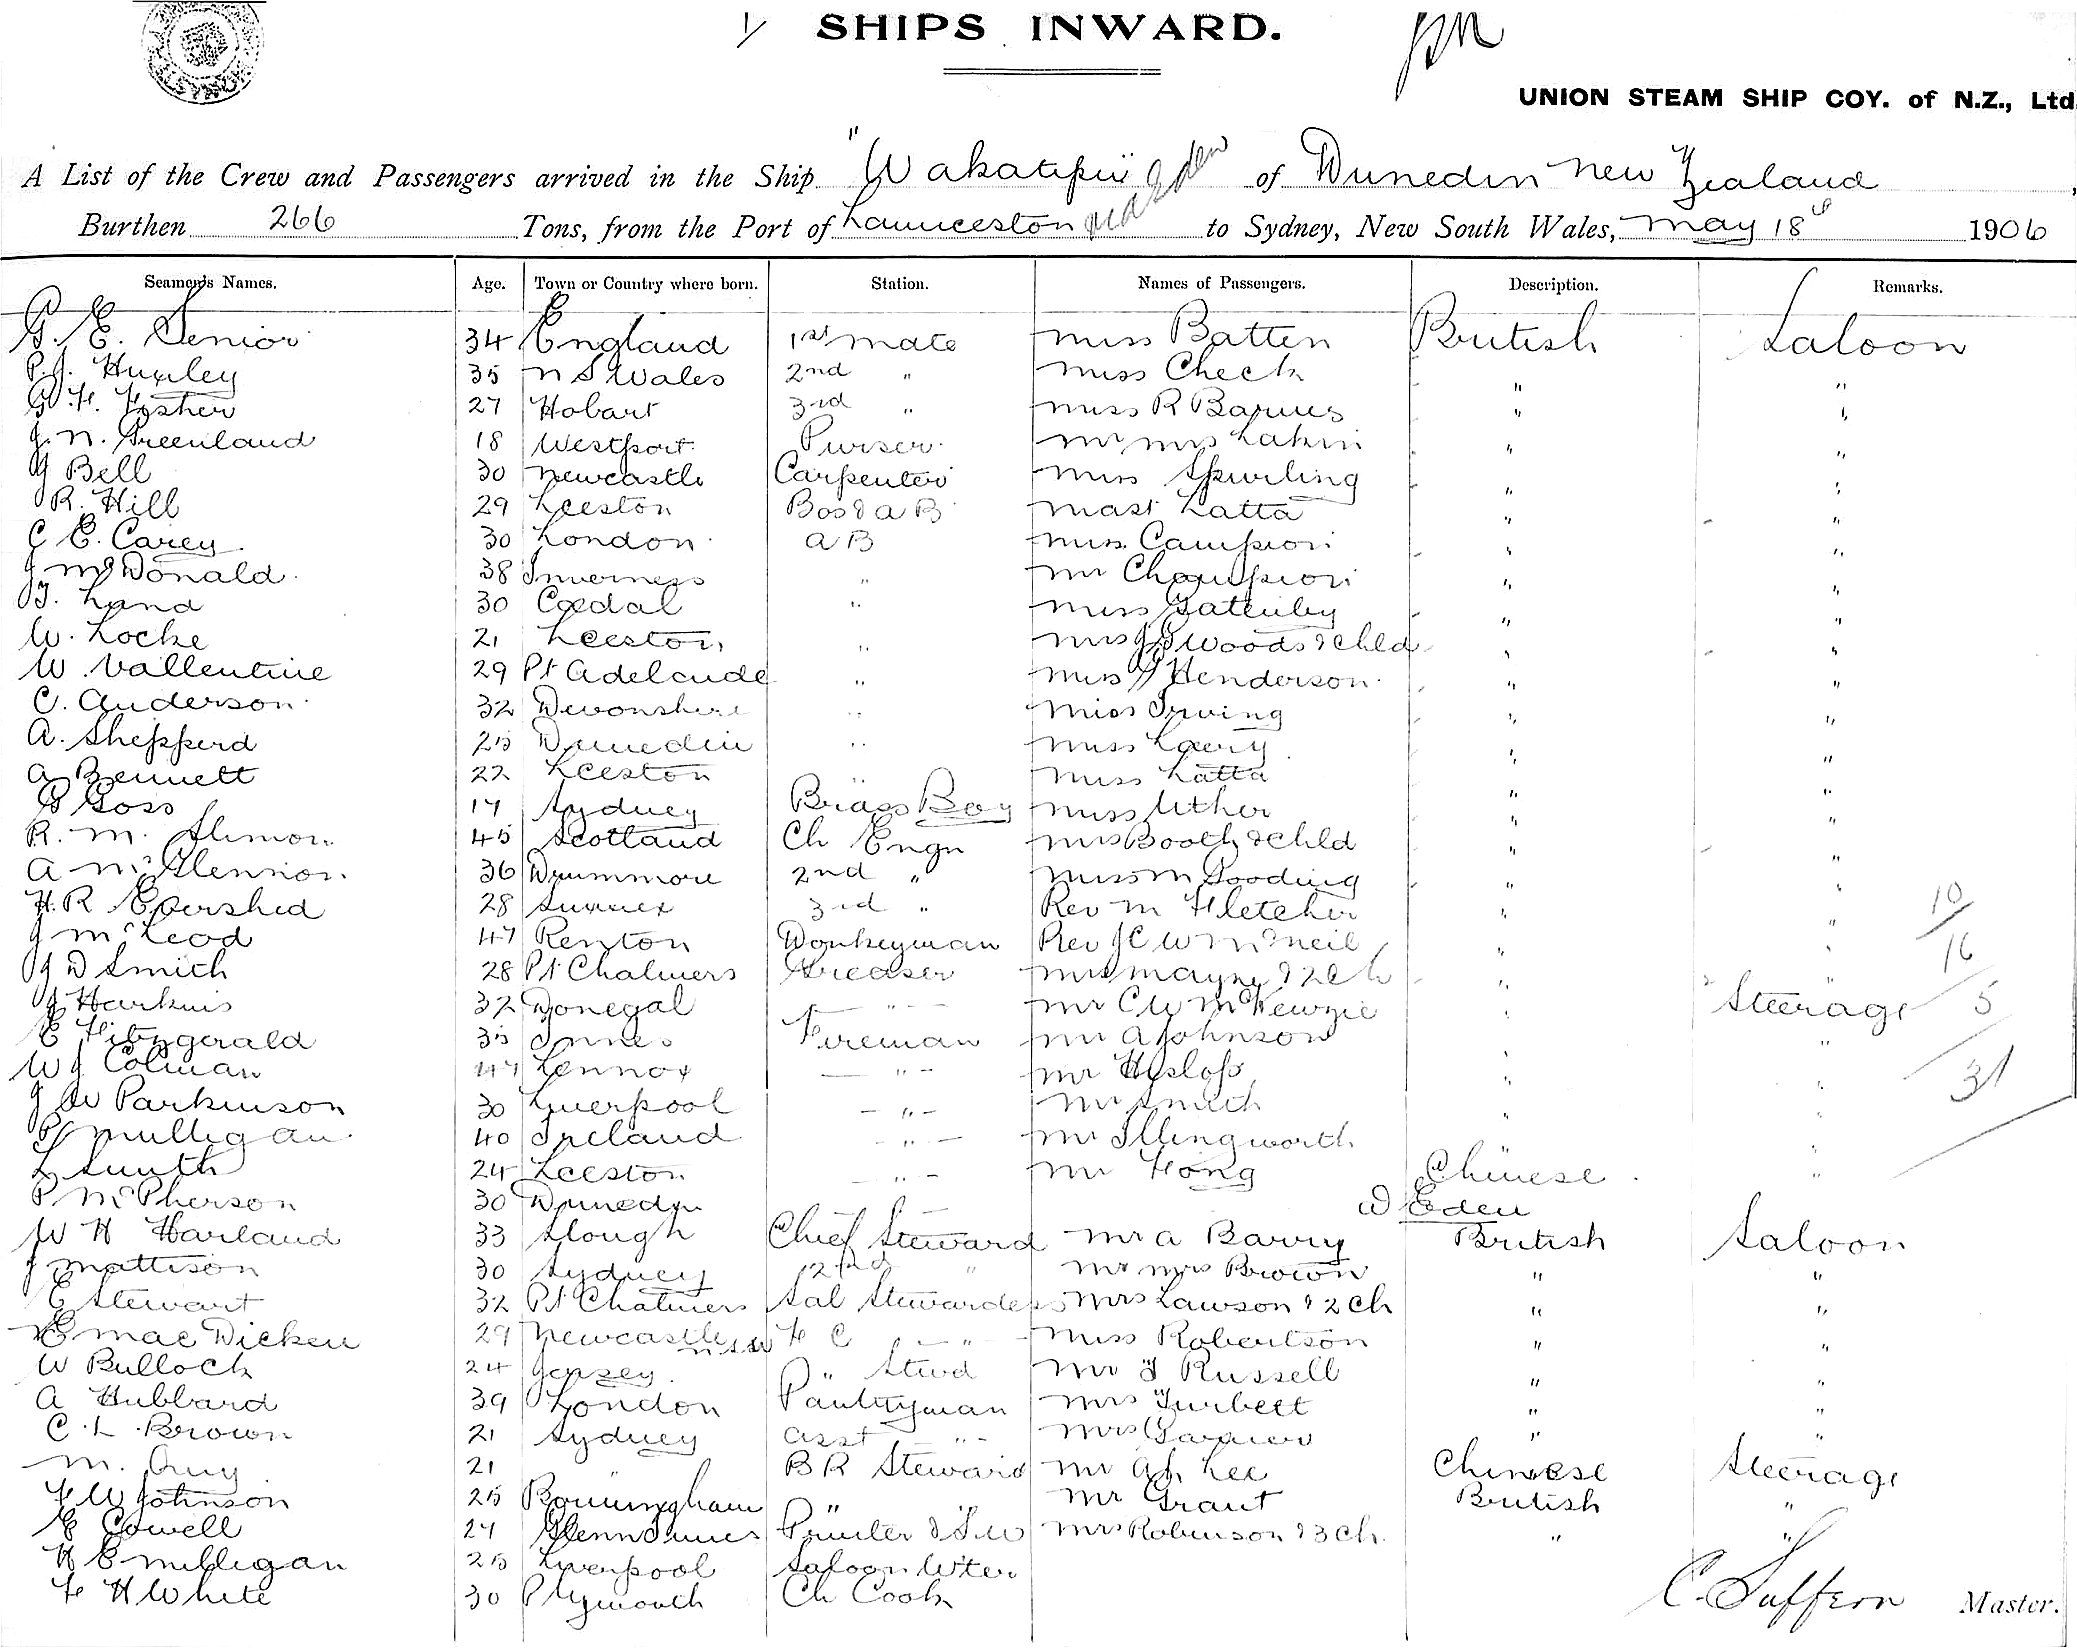 SHIPS INWARD.
UNION STEAM SHIP COY. of N.Z., Ltd
A List of the Crew and Passengers arrived in the Ship "Wakatipu" Eden of Dunedin New Zealand,
Burthen 266 Tons, from the Port of Launceston via to Sydney, New South Wales, May 18 1906
Seamen's Names. Age. Town or Country where born. Station. Names of Passengers. Description. Remarks.
G. E. Senior 34 England 1st Mate Miss Batten British Saloon
P.J. Huxley 35 N S Wales 2nd " Miss Check " "
G. H. Fysher 27 Hobart 3rd " Miss R Barnes " "
J. N. Greenland 18 Westport Purser Mr Mrs Lakin " "
J Bell 30 Newcastle Carpenter Miss Spurling " "
R. Hill 29 Leeston Bos & A B Mast Latta " "
C E. Carey 30 London A B Miss Campion " "
J McDonald 38 Inverness " Mr Champion " "
T. Land 30 " Miss Gatenby " "
W. Locke 21 Leeston " Mrs Woods & Chld " "
W. Vallentine 29 Pt Adelaide " Miss Henderson " "
C. Anderson 32 Devonshire " Miss Irving " "
A. Shepperd 25 Dunedin " Miss Lavery " "
A Bennett 22 Leeston " Miss Latta " "
G Goss 17 Sydney Brass Boy Miss Uther " "
R. M. Slimon 45 Scotland Ch Engn Mrs Booth & Chld " "
A McGlennon 36 Drummore 2nd " Miss M Gooding " "
H. R Evershed 28 Sussex 3rd " Rev M Fletcher " " 10
J McLeod 47 Renton Donkeyman Rev J C W McNeil " " 16
J D Smith 28 Pt Chalmers Greaser Mrs Mayne & 2 Ch " "
J Harkins 32 Donegal " Mr C W McKenzie " Steerage 5
E Fitzgerald 35 Fireman Mr A Johnson " "
W J Colman 47 Lennox " Mr Heslop " " 31
J W Parkinson 30 Liverpool " Mr Smith " "
P Mulligan 40 Ireland " Mr Illingworth " "
L Smith 24 Leeston " Mr Hong Chinese "
P McPherson 30 Dunedin " Eden
W H Harland 33 Slough Chief Steward Mr A Barry British Saloon
J Mattison 30 Sydney 2nd " Mr Mrs Brown " "
E Stewart 32 Pt Chalmers Sal Stewardess Mrs Lawson & 2 Ch " "
E MacDicken 29 Newcastle NSW F C " Miss Robertson " "
W Bullock 24 Jersey " Stwd Mr J Russell " "
A Hubbard 39 London Pantryman Mrs Turbett " "
C. L. Brown 21 Sydney Asst " Mrs " "
M. Guy 21 " B R Steward Mr Ah Lee Chinese Steerage
F W Johnson 25 Birmingham " Mr Grant British "
E Cowell 27 Glenn Innes Printer & S.W Mrs Robinson & 3 Ch. " "
H E Milligan 25 Liverpool Saloon Wter
F H White 30 Plymouth Ch Cook
C. Suffern Master.